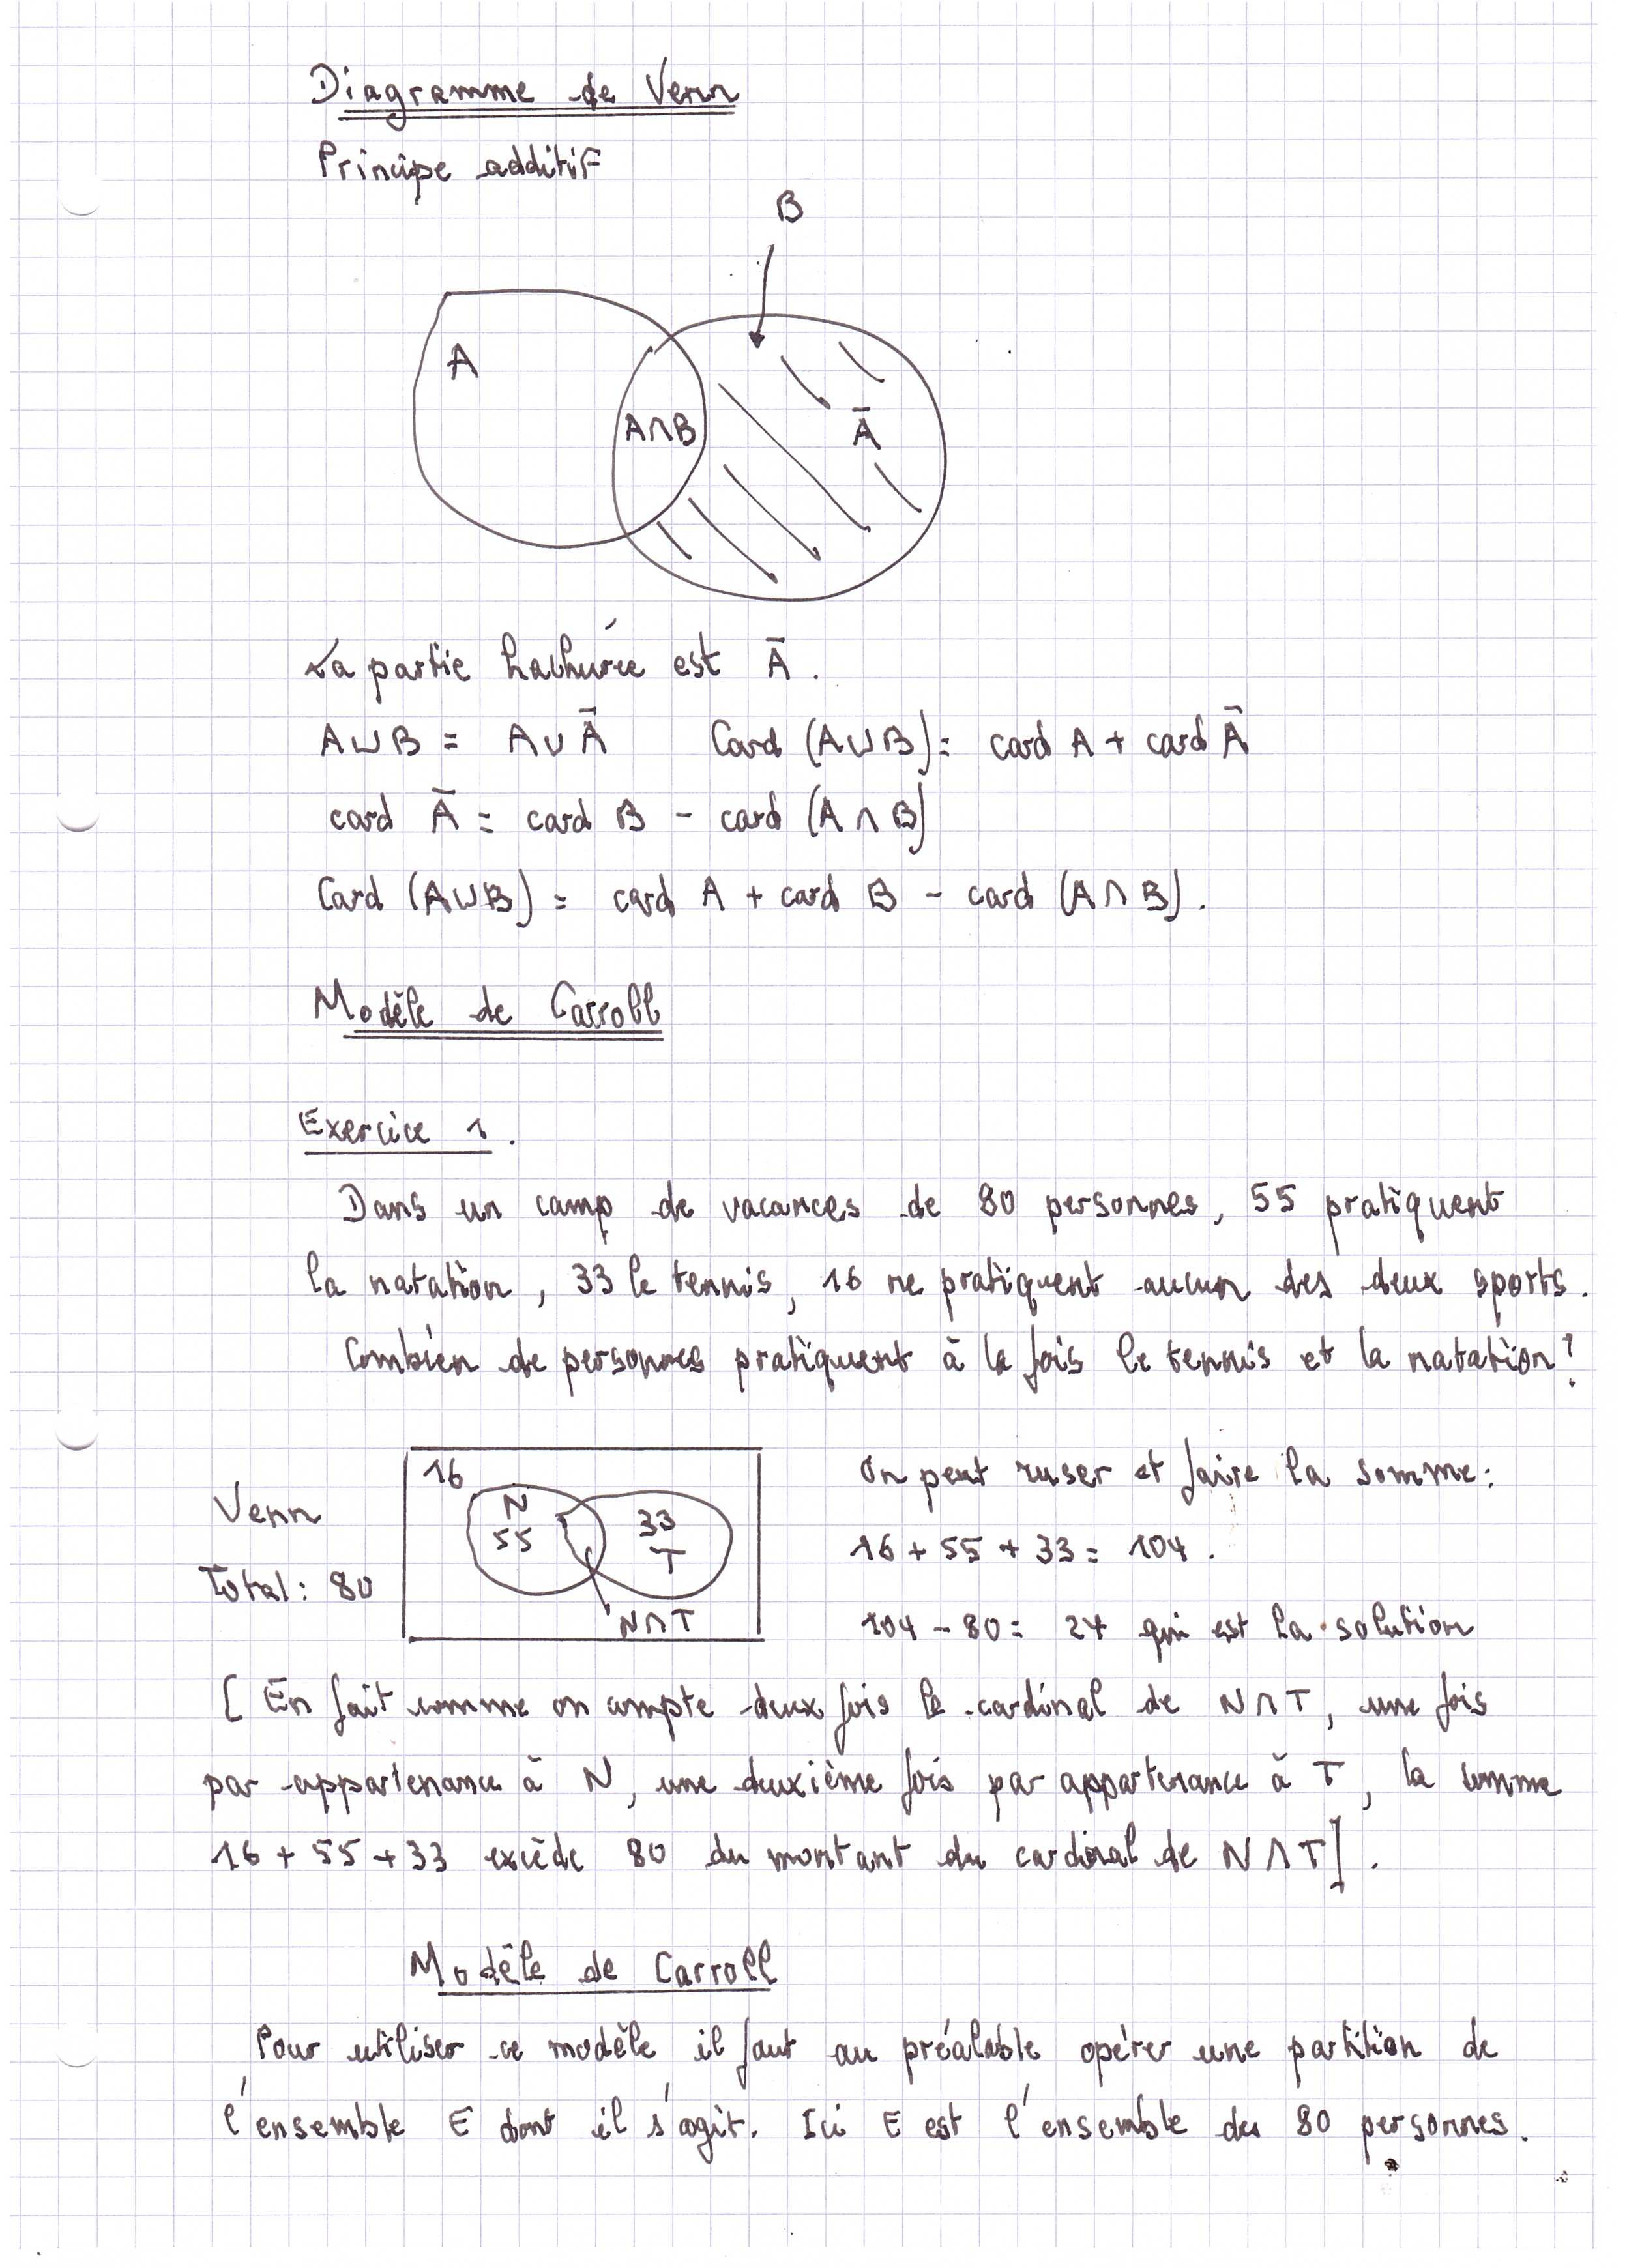 Diagramme de Venn
Principe additif
B
A
A∩B
Ā
La partie hachurée est Ā.
A∪B = A∪Ā Card (A∪B) = card A + card Ā
card Ā = card B - card (A∩B)
Card (A∪B) = card A + card B - card (A∩B).
Modèle de Carroll
Exercice 1.
Dans un camp de vacances de 80 personnes, 55 pratiquent
la natation, 33 le tennis, 16 ne pratiquent aucun des deux sports.
Combien de personnes pratiquent à la fois le tennis et la natation?
Venn
Total: 80
16
N
55
33
T
N∩T
On peut ruser et faire la somme:
16 + 55 + 33 = 104.
104 - 80 = 24 qui est la solution
[ En fait comme on compte deux fois le cardinal de N∩T, une fois
par appartenance à N, une deuxième fois par appartenance à T, la somme
16 + 55 + 33 excède 80 du montant du cardinal de N∩T].
Modèle de Carroll
Pour utiliser ce modèle il faut au préalable opérer une partition de
l'ensemble E dont il s'agit. Ici E est l'ensemble des 80 personnes.